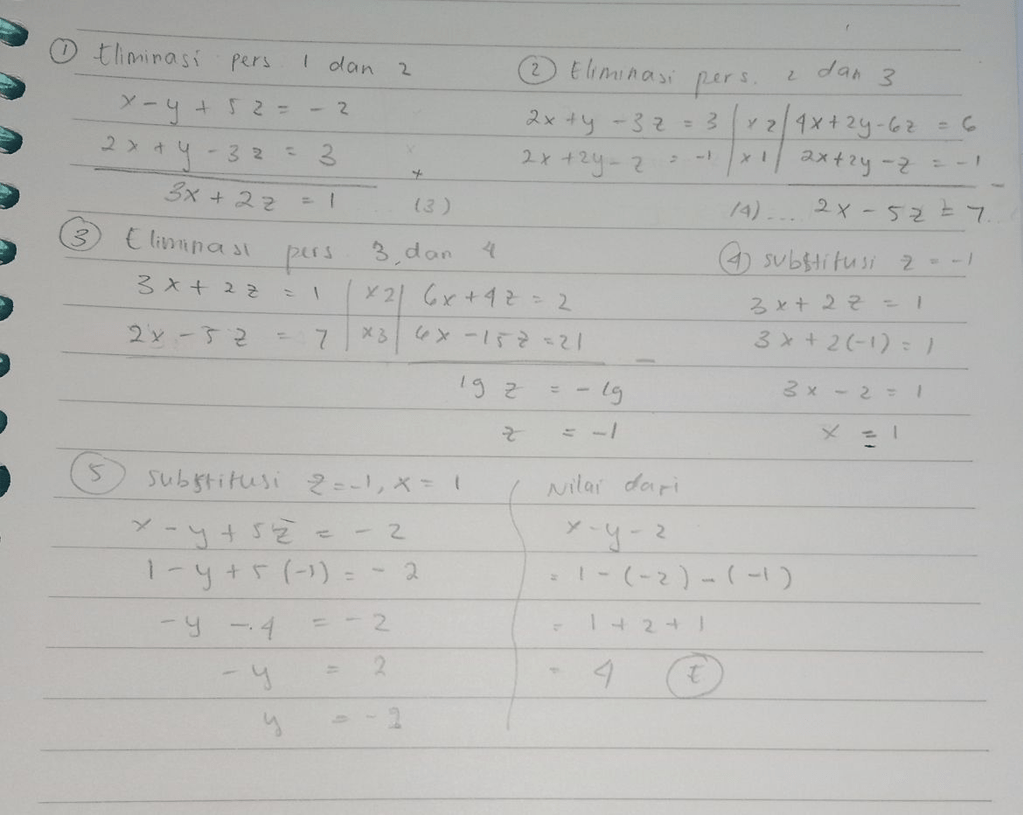 ① Eliminasi pers 1 dan 2
x - y + 5z = -2
2x + y - 3z = 3
+
3x + 2z = 1 (3)
② Eliminasi pers. 2 dan 3
2x + y - 3z = 3 | x2 | 4x + 2y - 6z = 6
2x + 2y - z = -1 | x1 | 2x + 2y - z = -1
-
(4)... 2x - 5z = 7
③ Eliminasi pers 3 dan 4
3x + 2z = 1 | x2 | 6x + 4z = 2
2x - 5z = 7 | x3 | 6x - 15z = 21
-
19z = -19
z = -1
④ substitusi z = -1
3x + 2z = 1
3x + 2(-1) = 1
3x - 2 = 1
x = 1
⑤ substitusi z = -1, x = 1
x - y + 5z = -2
1 - y + 5(-1) = -2
-y - 4 = -2
-y = 2
y = -2
Nilai dari
x - y - z
= 1 - (-2) - (-1)
= 1 + 2 + 1
= 4 Ⓔ